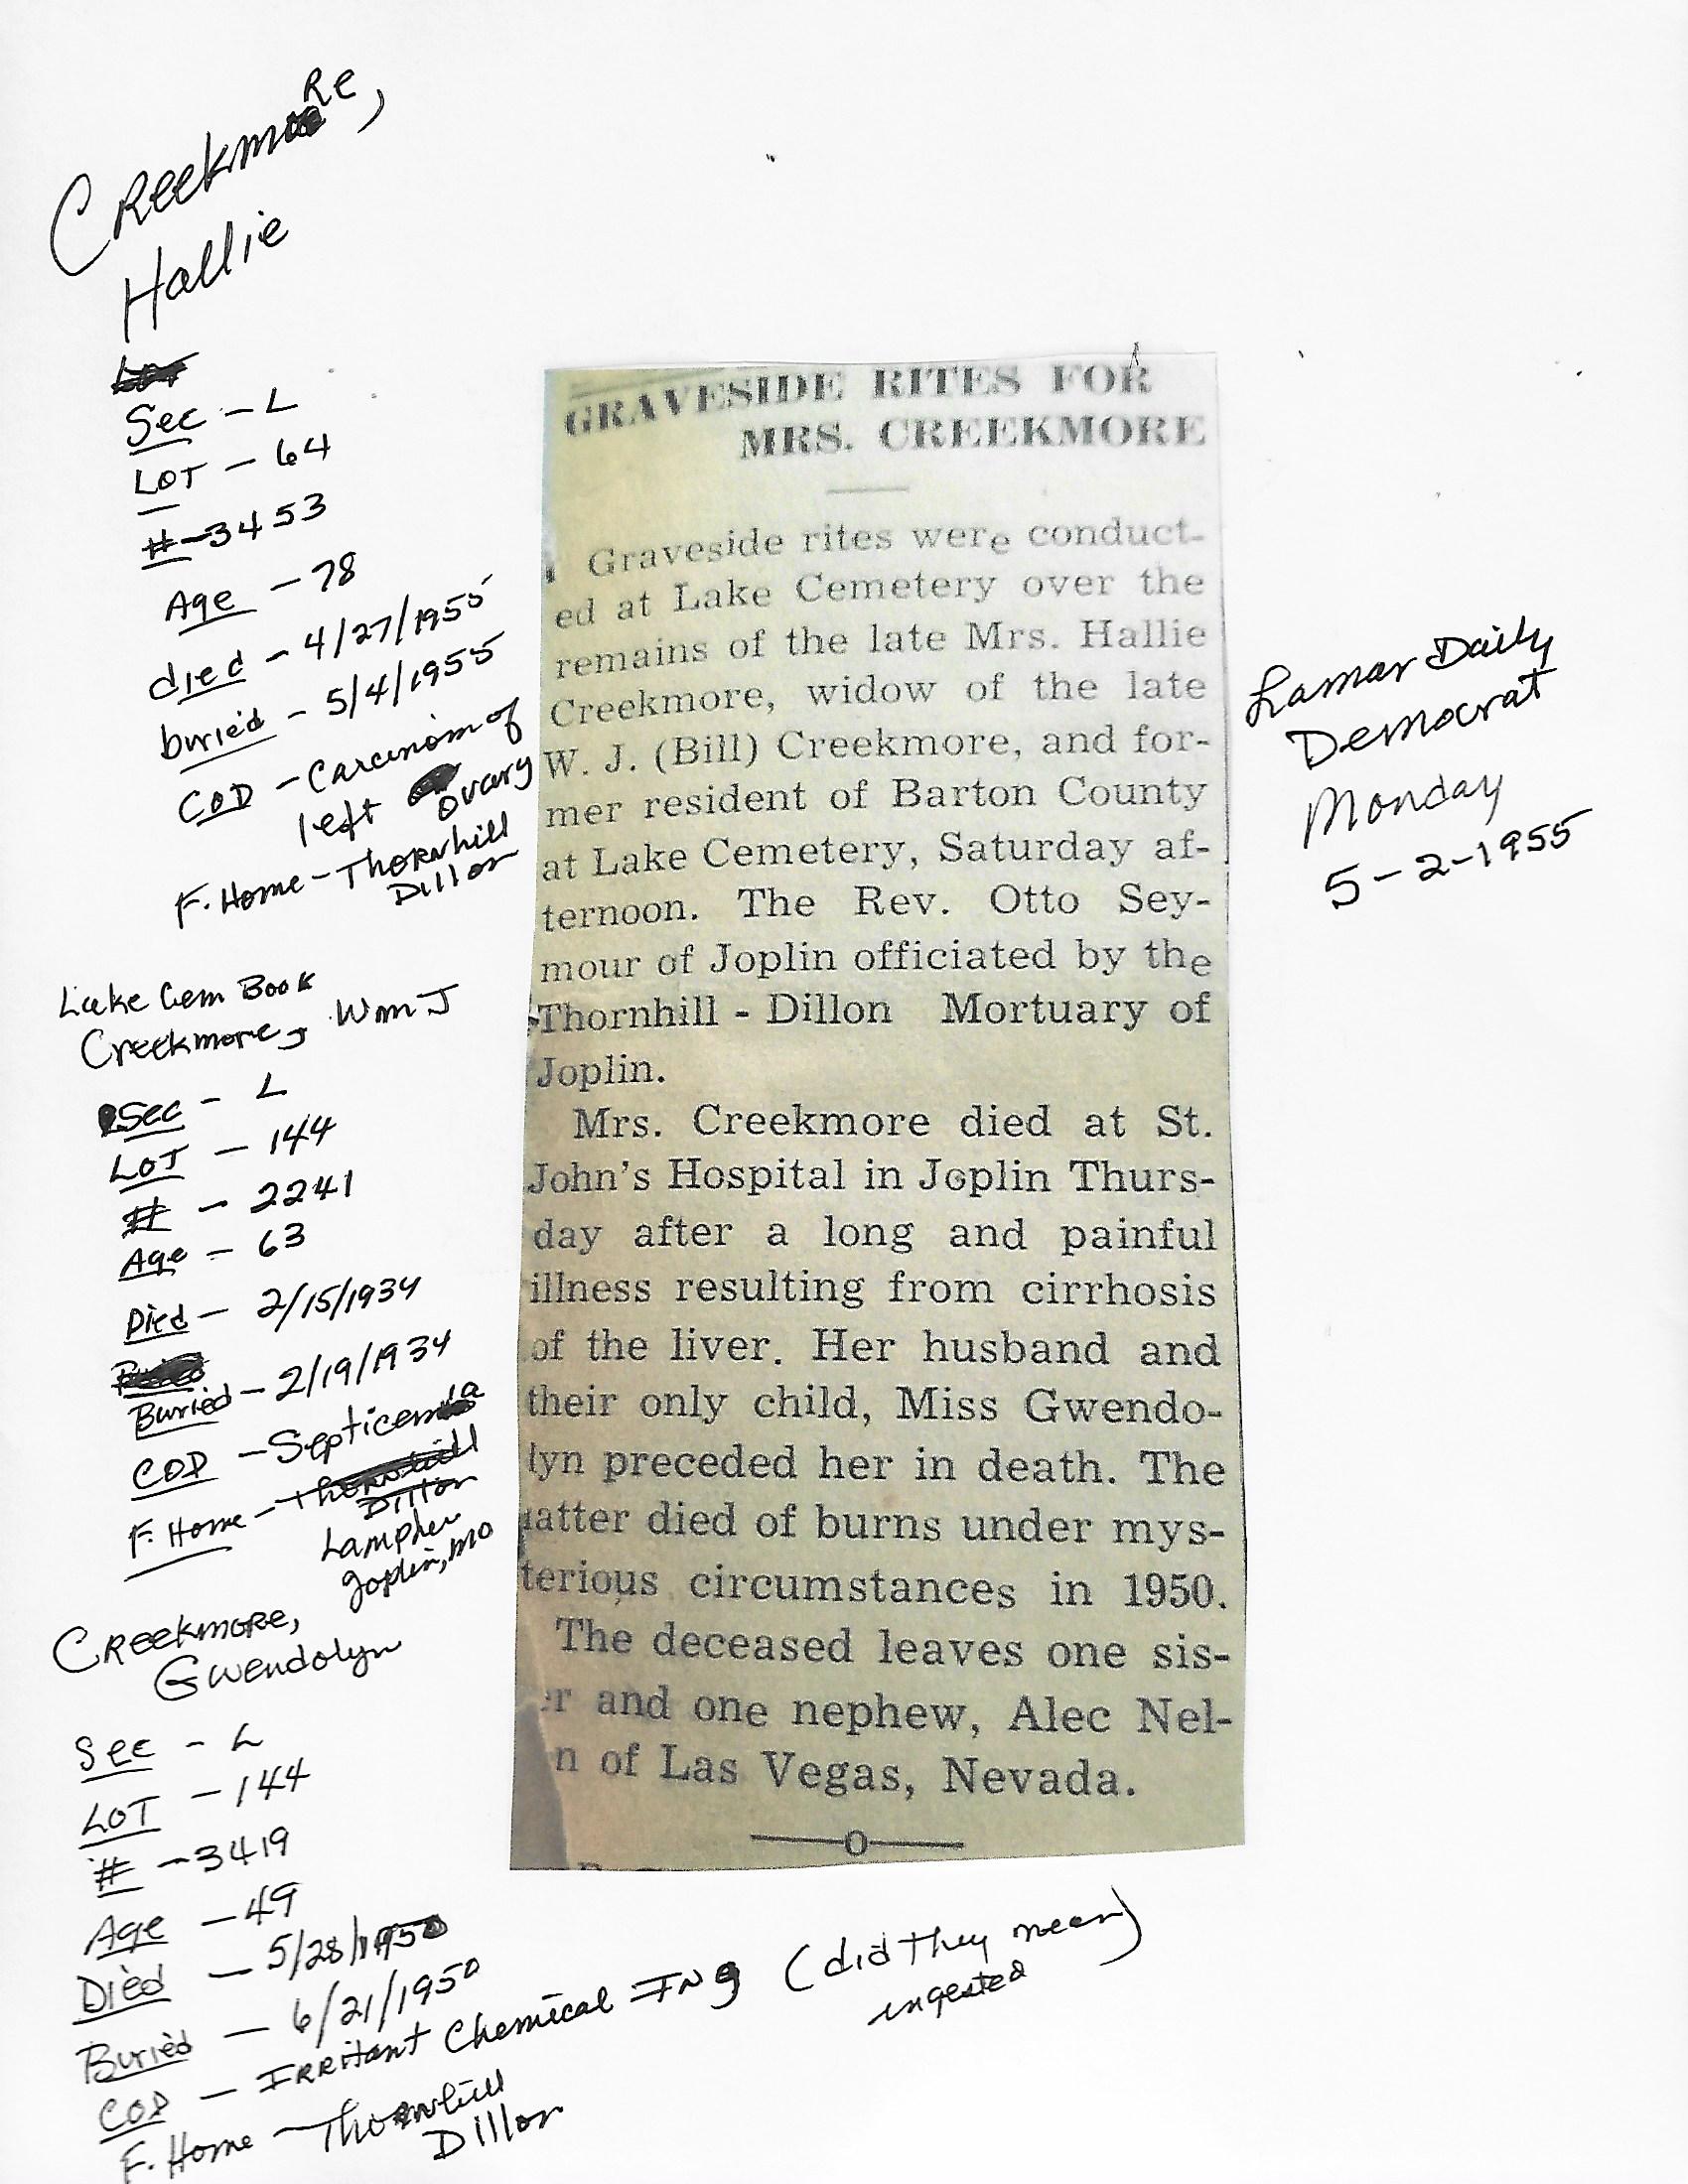 CReekmoRe,
Hallie
Sec - L
LOT - 64
# - 3453
Age - 78
died - 4/27/1955
buried - 5/4/1955
COD - Carcinom of
left Ovary
F. Home - Thornhill
Dillon
Lake Cem Book
Creekmore, Wm J
Sec - L
LOT - 144
# - 2241
Age - 63
Died - 2/15/1934
Buried - 2/19/1934
COD - Septicemia
F. Home - Thornhill
Dillon
Lampher
Joplin, MO
CReekmoRe,
Gwendolyn
Sec - L
LOT - 144
# - 3419
Age - 49
Died - 5/28/1950
Buried - 6/21/1950
COD - IRRitant Chemical Ing (did they mean)
ingested
F. Home - Thornhill
Dillon
GRAVESIDE RITES FOR
MRS. CREEKMORE
Graveside rites were conduct-
ed at Lake Cemetery over the
remains of the late Mrs. Hallie
Creekmore, widow of the late
W. J. (Bill) Creekmore, and for-
mer resident of Barton County
at Lake Cemetery, Saturday af-
ternoon. The Rev. Otto Sey-
mour of Joplin officiated by the
Thornhill - Dillon Mortuary of
Joplin.
Mrs. Creekmore died at St.
John's Hospital in Joplin Thurs-
day after a long and painful
illness resulting from cirrhosis
of the liver. Her husband and
their only child, Miss Gwendo-
lyn preceded her in death. The
latter died of burns under mys-
terious circumstances in 1950.
The deceased leaves one sis-
er and one nephew, Alec Nel-
n of Las Vegas, Nevada.
Lamar Daily
Democrat
Monday
5-2-1955